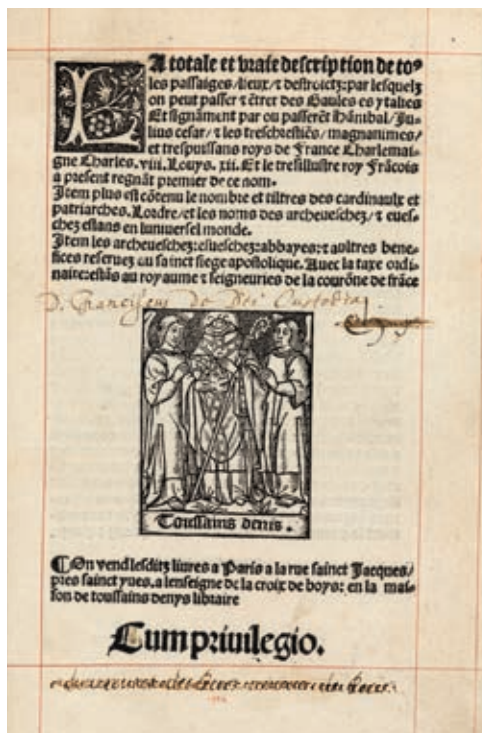 LA totale et vraie description de to⁹
les passaiges/lieux/⁊ destroictz:par lesquelz
on peut passer ⁊ ētrer des Gaules es ytalies
Et signāment par ou passerēt Hānibal/Ju-
lius cesar/⁊ les treschrestiēs/magnanimes/
et trespuissans roys de France Charlemai-
gne Charles.viii.Louys.xii.Et le tresillustre roy Frācois
a present regnāt premier de ce nom.
Item plus est cōtenu le nombre et tiltres des cardinaulx et
patriarches.Lordre/et les noms des archeueschez/⁊ eues-
chez estans en luniuersel monde.
Item les archeueschez:eueschez:abbayes:⁊ aultres bene-
fices reseruez ou sainct siege apostolique.Auec la taxe ordi-
naire:estās au royaume ⁊ seigneuries de la courōne de frāce
D. Franciscus de
Toussains denis.
¶On vend lesditz liures a Paris a la rue sainct Jacques/
pres sainct yues.a lenseigne de la croix de boys: en la mai-
son de toussains denys libraire
Cum priuilegio.